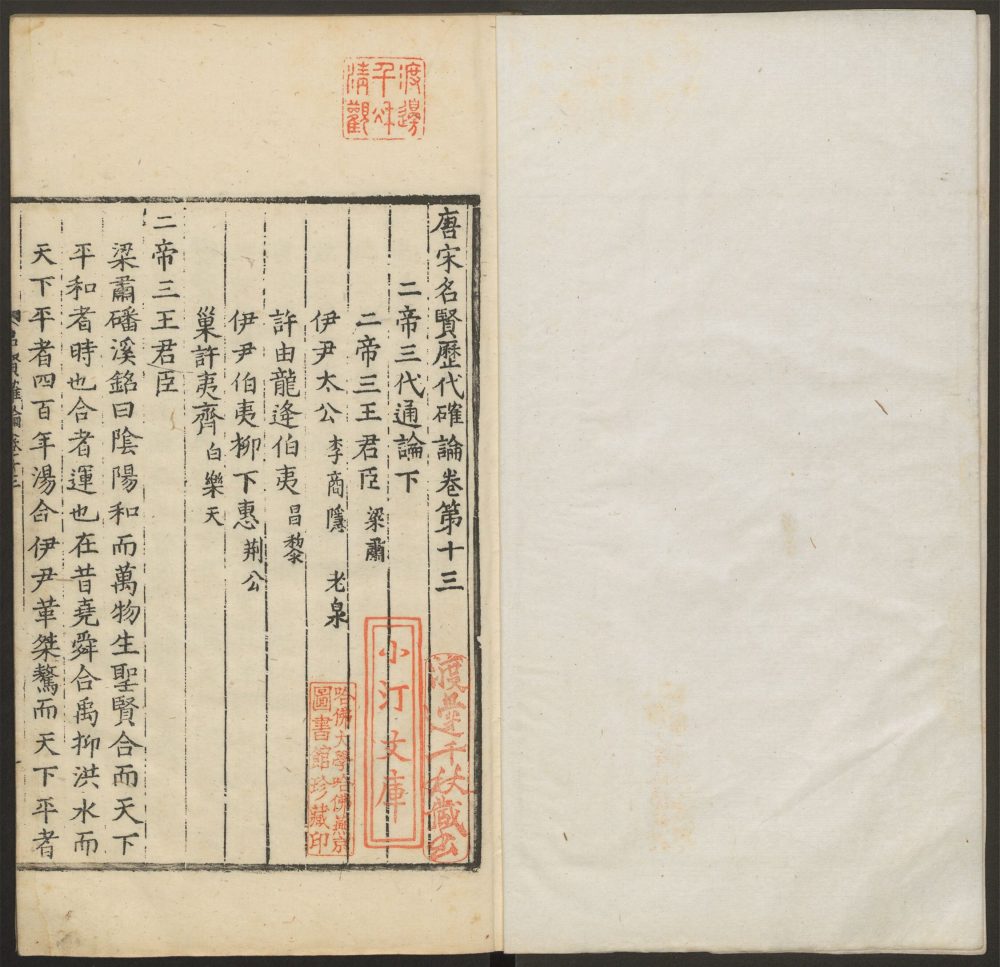 渡邊
千秋
清觀
唐宋名賢歷代確論卷第十三
二帝三代通論下
二帝三王君臣 梁肅
伊尹太公 李商隱 老泉
許由龍逄伯夷 昌黎
伊尹伯夷柳下惠 荆公
巢許夷齊 白樂天
二帝三王君臣
梁肅磻溪銘曰陰陽和而萬物生聖賢合而天下
平和者時也合者運也在昔堯舜合禹抑洪水而
天下平者四百年湯合伊尹革桀驁而天下平者
渡邊千秋藏書
小汀文庫
哈佛大學哈佛燕京
圖書館珍藏印